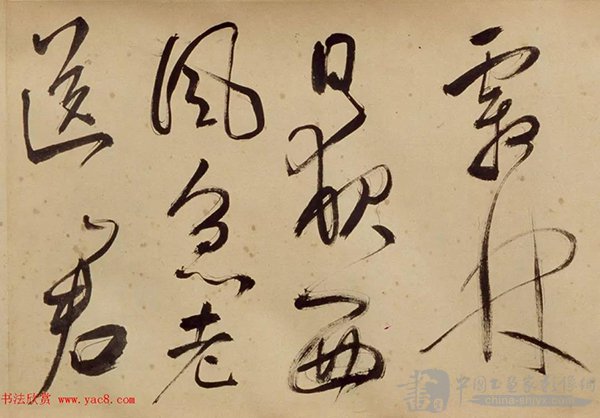 霜林
日夜西
風急老
送君
书法欣赏 www.yac8.com
china-shjyx.com